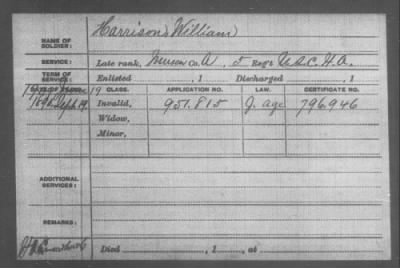 NAME OF SOLDIER: Harrison, William
SERVICE: Late rank, Co. A, 5 Reg't U.S.C.H.A.
TERM OF SERVICE: Enlisted , 1 Discharged , 1
DATE OF FILING. CLASS. APPLICATION NO. LAW. CERTIFICATE NO.
1890 Sept. 19 Invalid, 951.815 J. age 796.946
Widow,
Minor,
ADDITIONAL SERVICES:
REMARKS:
Died , 1 , at